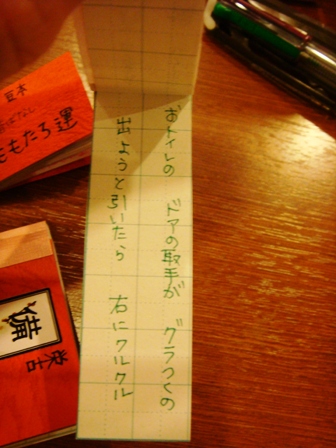 おトイレの ドアの取手が グラつくの
出ようと引いたら 右にクルクル
豆本
ももたろ運
備